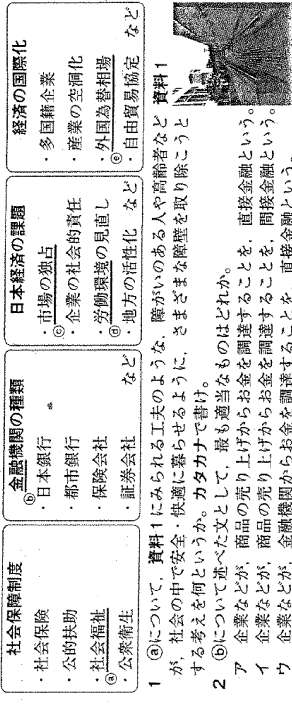 社会保障制度
・社会保険
・公的扶助
・社会福祉
ⓐ
・公衆衛生
ⓑ
金融機関の種類
・日本銀行
・都市銀行
・保険会社
・証券会社 など
日本経済の課題
・市場の独占
ⓒ
・企業の社会的責任
・労働環境の見直し
ⓓ
・地方の活性化 など
経済の国際化
・多国籍企業
・産業の空洞化
・外国為替相場
ⓔ
・自由貿易協定 など
1 ⓐについて,資料1にみられる工夫のような,障がいのある人や高齢者など
が,社会の中で安全・快適に暮らせるように,さまざまな障壁を取り除こうと
する考えを何というか。カタカナで書け。
資料1
2 ⓑについて述べた文として,最も適当なものはどれか。
ア 企業などが,商品の売り上げからお金を調達することを,直接金融という。
イ 企業などが,商品の売り上げからお金を調達することを,間接金融という。
ウ 企業などが,金融機関からお金を調達することを,直接金融という。